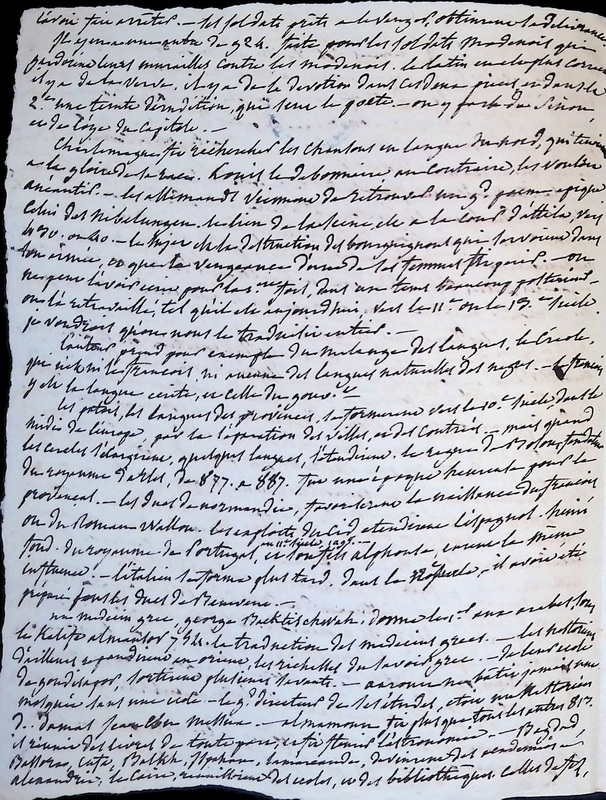 l'avoir fait arrêter. — les soldats prêts à le venger, obtinrent sa délivrance
Il y en a une autre de 924. faite pour les soldats modenois qui
gardoient leurs murailles contre les le latin en est plus correct
il y a de la verve, il y a de la dévotion dans ces deux pièces, et dans la
2.e une teinte d'érudition, qui sent le poète — on y parle de Sinon,
et de l'oye du Capitole. —
Charlemagne fit rechercher les chansons en langue du nord, qui
à la gloire de sa race. Louis le debonnaire au contraire, les voulut
anéantir. — les allemands viennent de retrouver un g.d poème épique
celui des Nibelungen. le lieu de la scène, est à la cour d'attila, vers
430. ou 40. — le sujet est la destruction des bourguignons qui servoient dans
son armée, et que la vengeance d'une de ses femmes fit périr. — on
ne peut l'avoir écrit pour las dans un tems beaucoup postérieur
on l'a retravaillé, tel qu'il est aujourdhui, vers le 11.e ou le 12.e siècle.
je voudrois qu'on nous le traduisit entier. —
l'auteur prend pour exemple du mélange des langues, le Créole,
qui n'est ni le françois, ni aucune des langues naturelles des nègres. — le françois
y est la langue écrite, et celle du gouv.t
les patois, les langues des provinces, se formèrent vers le 10.e siècle, dans le
midi de l'europe, par la séparation des villes, et des contrées. — mais quand
les cercles s'élargirent, quelques langues, s'étendirent. le règne de Boson, fondateur
du royaume d'arles, de 877. à 887. fut une époque heureuse pour le
provençal. — les ducs de normandie, favorisèrent la naissance du françois
ou du Roman wallon. les exploits du Cid, étendirent l'espagnol. henri
fond. du royaume de Portugal, et son fils alphonse, eurent la même
influence. — l'italien se forma plus tard, dans le il avoit été
préparé sous les ducs de Benevent. —
un médecin grec, george Baktischwah, donna le 1.er aux arabes, sous
le Kalife almansor la traduction des médecins grecs. — les nestoriens
d'ailleurs répandirent en orient, les richesses du savoir grec — de leur école
de gondisapor, sortirent plusieurs savants. — aaroun ne batit jamais une
mosquée sans une école — le g.d directeur de ses études, étoit un nestorien
d. damas Jean Eben messua. — almamoun fit plus que tous les autres
il réunit des livres de toute part, et fit fleurir l'astronomie. — Bagdad
Bassora, Cufa, Balkh, Ispahan, Samarcande, devinrent des académies;
alexandrie, le Caire, des écoles, et des bibliothèques. celles de fez,